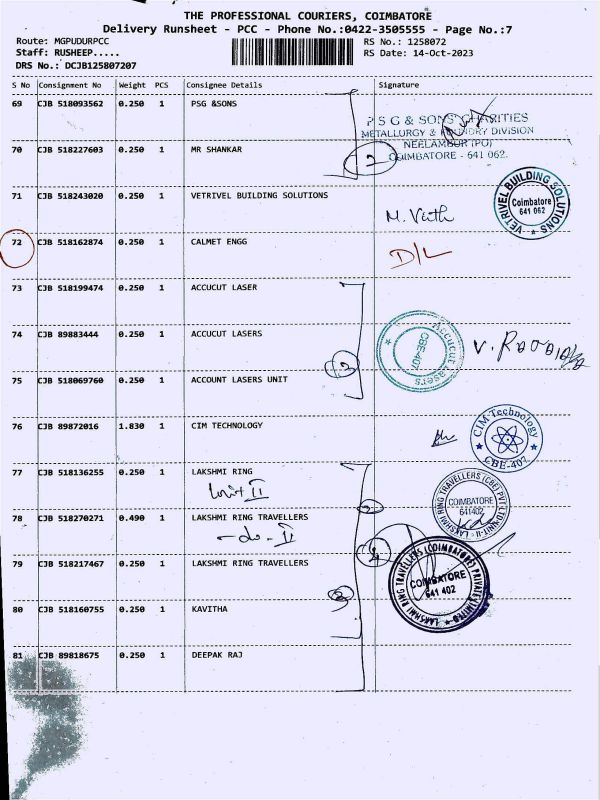 THE PROFESSIONAL COURIERS, COIMBATORE
Delivery Runsheet - PCC - Phone No.:0422-3505555 - Page No.:7
Route: MGPUDURPCC RS No.: 1258072
Staff: RUSHEEP..... RS Date: 14-Oct-2023
DRS No.: DCJB125807207
S No Consignment No Weight PCS Consignee Details Signature
69 CJB 518093562 0.250 1 PSG &SONS
P S G & SONS' CHARITIES
METALLURGY & FOUNDRY DIVISION
NEELAMBUR (PO)
COIMBATORE - 641 062.
70 CJB 518227603 0.250 1 MR SHANKAR
2
71 CJB 518243020 0.250 1 VETRIVEL BUILDING SOLUTIONS
VETRIVEL BUILDING SOLUTIONS
Coimbatore
641 062
72 CJB 518162874 0.250 1 CALMET ENGG
D/L
73 CJB 518199474 0.250 1 ACCUCUT LASER
74 CJB 89883444 0.250 1 ACCUCUT LASERS
3
Accucut Lasers
CBE-407
75 CJB 518069760 0.250 1 ACCOUNT LASERS UNIT
76 CJB 89872016 1.830 1 CIM TECHNOLOGY
CIM Technology
CBE-407
77 CJB 518136255 0.250 1 LAKSHMI RING
Unit II
LAKSHMI RING TRAVELLERS (CBE) PVT LTD UNIT-II
COIMBATORE
641402
78 CJB 518270271 0.490 1 LAKSHMI RING TRAVELLERS
-do- II
79 CJB 518217467 0.250 1 LAKSHMI RING TRAVELLERS
LAKSHMI RING TRAVELLERS (COIMBATORE) PRIVATE LIMITED
COIMBATORE
641 402
80 CJB 518160755 0.250 1 KAVITHA
3
81 CJB 89818675 0.250 1 DEEPAK RAJ